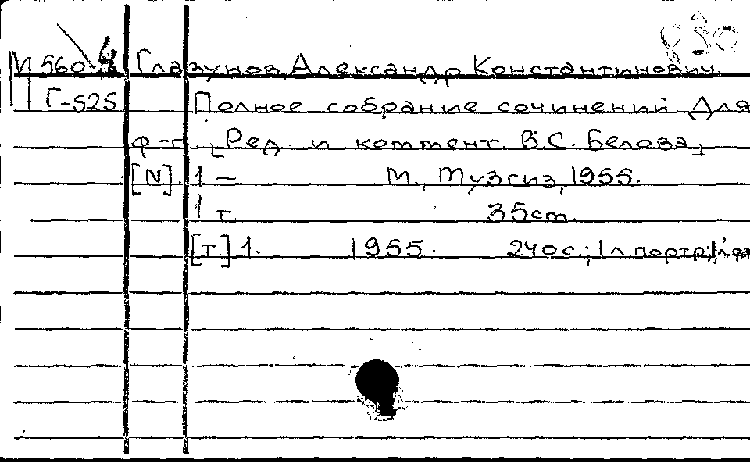 М 560.4 Глазунов, Александр Константинович.
Г-525 Полное собрание сочинений для
ф-п. [Ред. и коммент. В.С. Белова]
[N] 1 – М., Музгиз, 1955.
1 т. 35cm.
[т] 1. 1955. 240с.; 1 л портр;